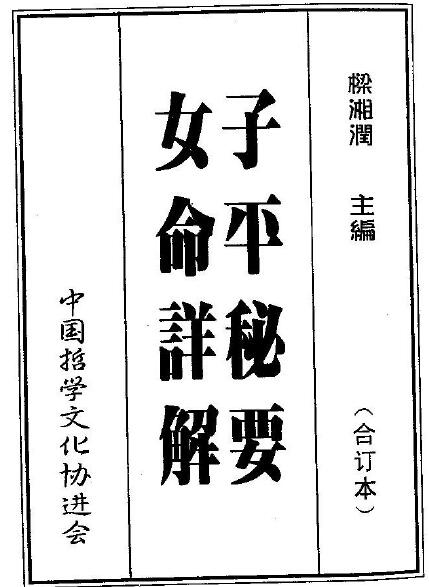 樑湘潤 主編
(合订本)
子平秘要
女命詳解
中国哲学文化协进会